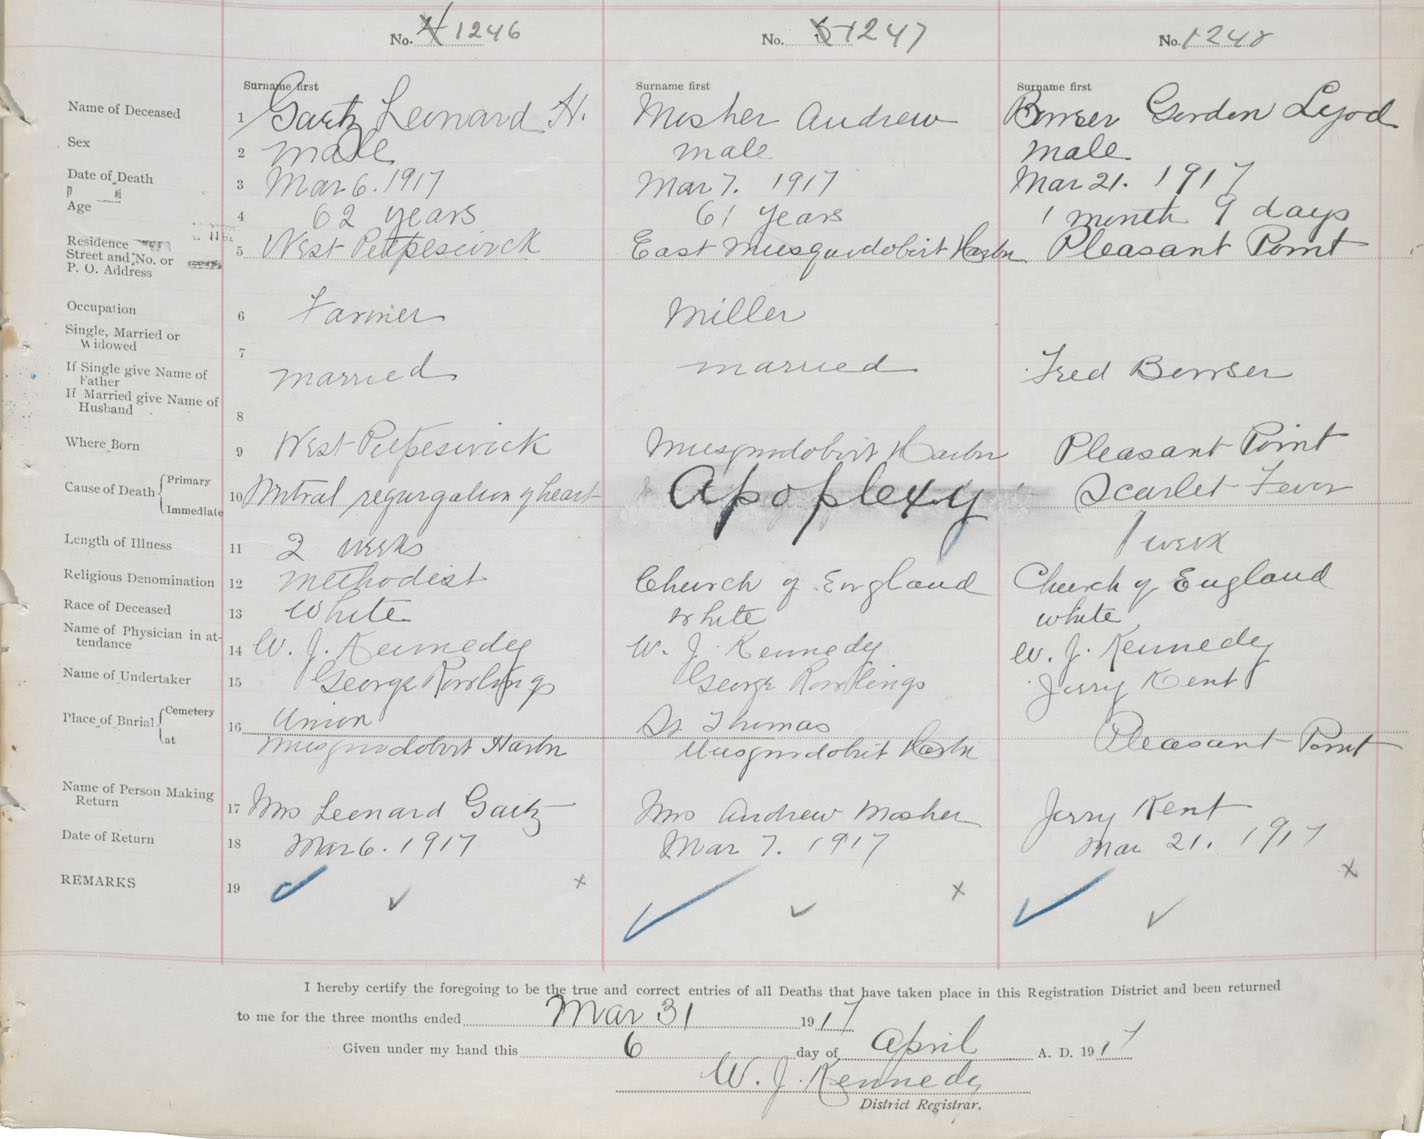 No. 1246 No. 1247 No. 1248
Surname first Surname first Surname first
Name of Deceased 1 Gaetz Leonard H. Mosher Andrew Bowser Gordon Lyod
Sex 2 male male male
Date of Death 3 Mar 6. 1917 Mar 7. 1917 Mar 21. 1917
Age 4 62 years 61 years 1 month 9 days
Residence
Street and No. or 5 West Petpeswick East Musquodobit Harbr Pleasant Point
P. O. Address
Occupation 6 Farmer Miller
Single, Married or
Widowed 7 married married
If Single give Name of
Father Fred Bowser
If Married give Name of
Husband 8
Where Born 9 West Petpeswick Musquodobit Harbr Pleasant Point
Cause of Death Primary
10 Mitral regurgation of heart Apoplexy Scarlet Fever
Immediate
Length of Illness 11 2 weeks 1 week
Religious Denomination 12 Methodist Church of England Church of England
Race of Deceased 13 White White white
Name of Physician in at-
tendance 14 W. J. Kennedy W. J. Kennedy W. J. Kennedy
Name of Undertaker 15 George Rowlings George Rowlings Jerry Kent
Place of Burial Cemetery 16 Union St Thomas
at Musquodobit Harbr Musquodobit Harbr Pleasant Point
Name of Person Making
Return 17 Mrs Leonard Gaetz Mrs Andrew Mosher Jerry Kent
Date of Return 18 Mar 6. 1917 Mar 7. 1917 Mar 21. 1917
REMARKS 19 x x x
I hereby certify the foregoing to be the true and correct entries of all Deaths that have taken place in this Registration District and been returned
to me for the three months ended Mar 31 1917
Given under my hand this 6 day of April A. D. 1917
W. J. Kennedy
District Registrar.